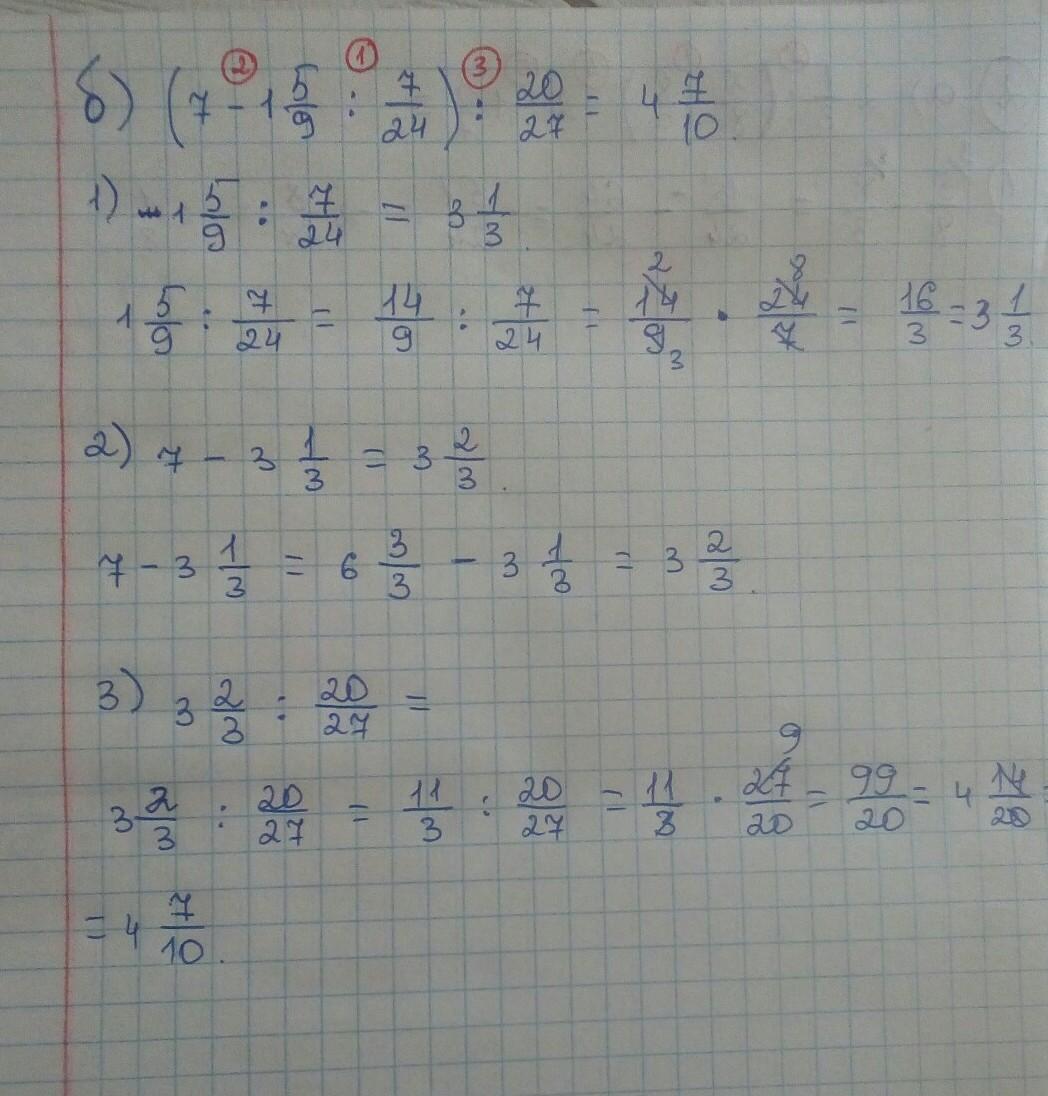 ② ① ③
б) (7 - 1 5/9 : 7/24) : 20/27 = 4 7/10.
1) 1 5/9 : 7/24 = 3 1/3.
1 5/9 : 7/24 = 14/9 : 7/24 = 14/9 · 24/7 = 16/3 = 3 1/3.
2 8
3
2) 7 - 3 1/3 = 3 2/3.
7 - 3 1/3 = 6 3/3 - 3 1/3 = 3 2/3.
3) 3 2/3 : 20/27 =
9
3 2/3 : 20/27 = 11/3 : 20/27 = 11/3 · 27/20 = 99/20 = 4 14/20 =
= 4 7/10.